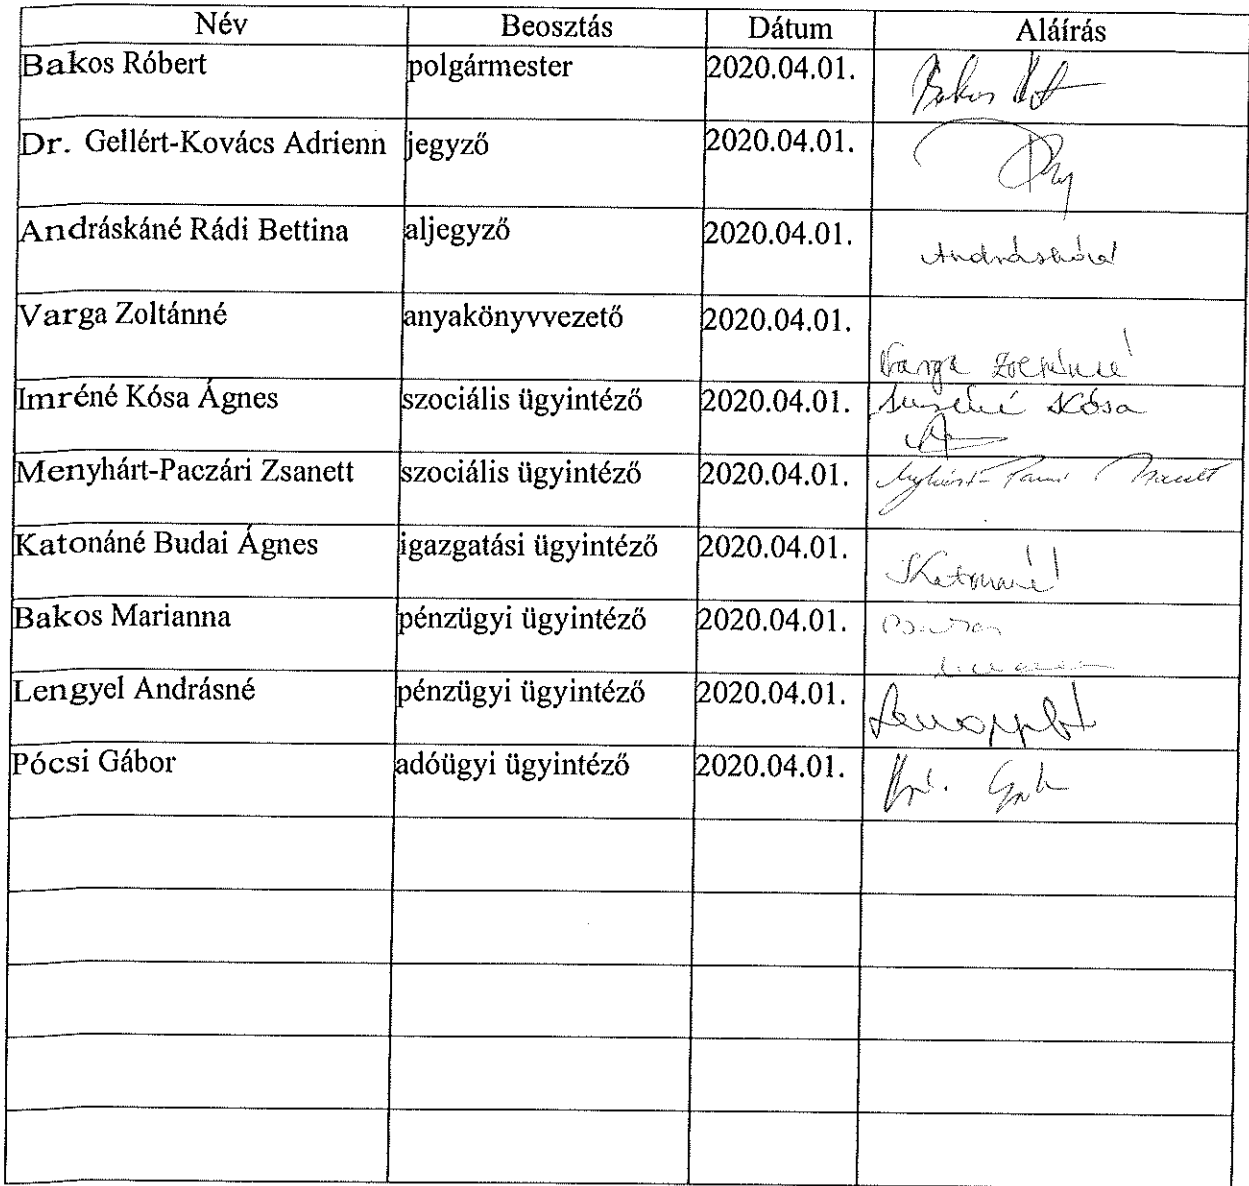 Név Beosztás Dátum Aláírás
Bakos Róbert polgármester 2020.04.01. Bakos
Dr. Gellért-Kovács Adrienn jegyző 2020.04.01.
Andráskáné Rádi Bettina aljegyző 2020.04.01. Andráskáné
Varga Zoltánné anyakönyvvezető 2020.04.01.
Varga Zoltánné
Imréné Kósa Ágnes szociális ügyintéző 2020.04.01. Imréné Kósa
Menyhárt-Paczári Zsanett szociális ügyintéző 2020.04.01.
Katonáné Budai Ágnes igazgatási ügyintéző 2020.04.01.
Katonáné
Bakos Marianna pénzügyi ügyintéző 2020.04.01.
Lengyel Andrásné pénzügyi ügyintéző 2020.04.01.
Pócsi Gábor adóügyi ügyintéző 2020.04.01.